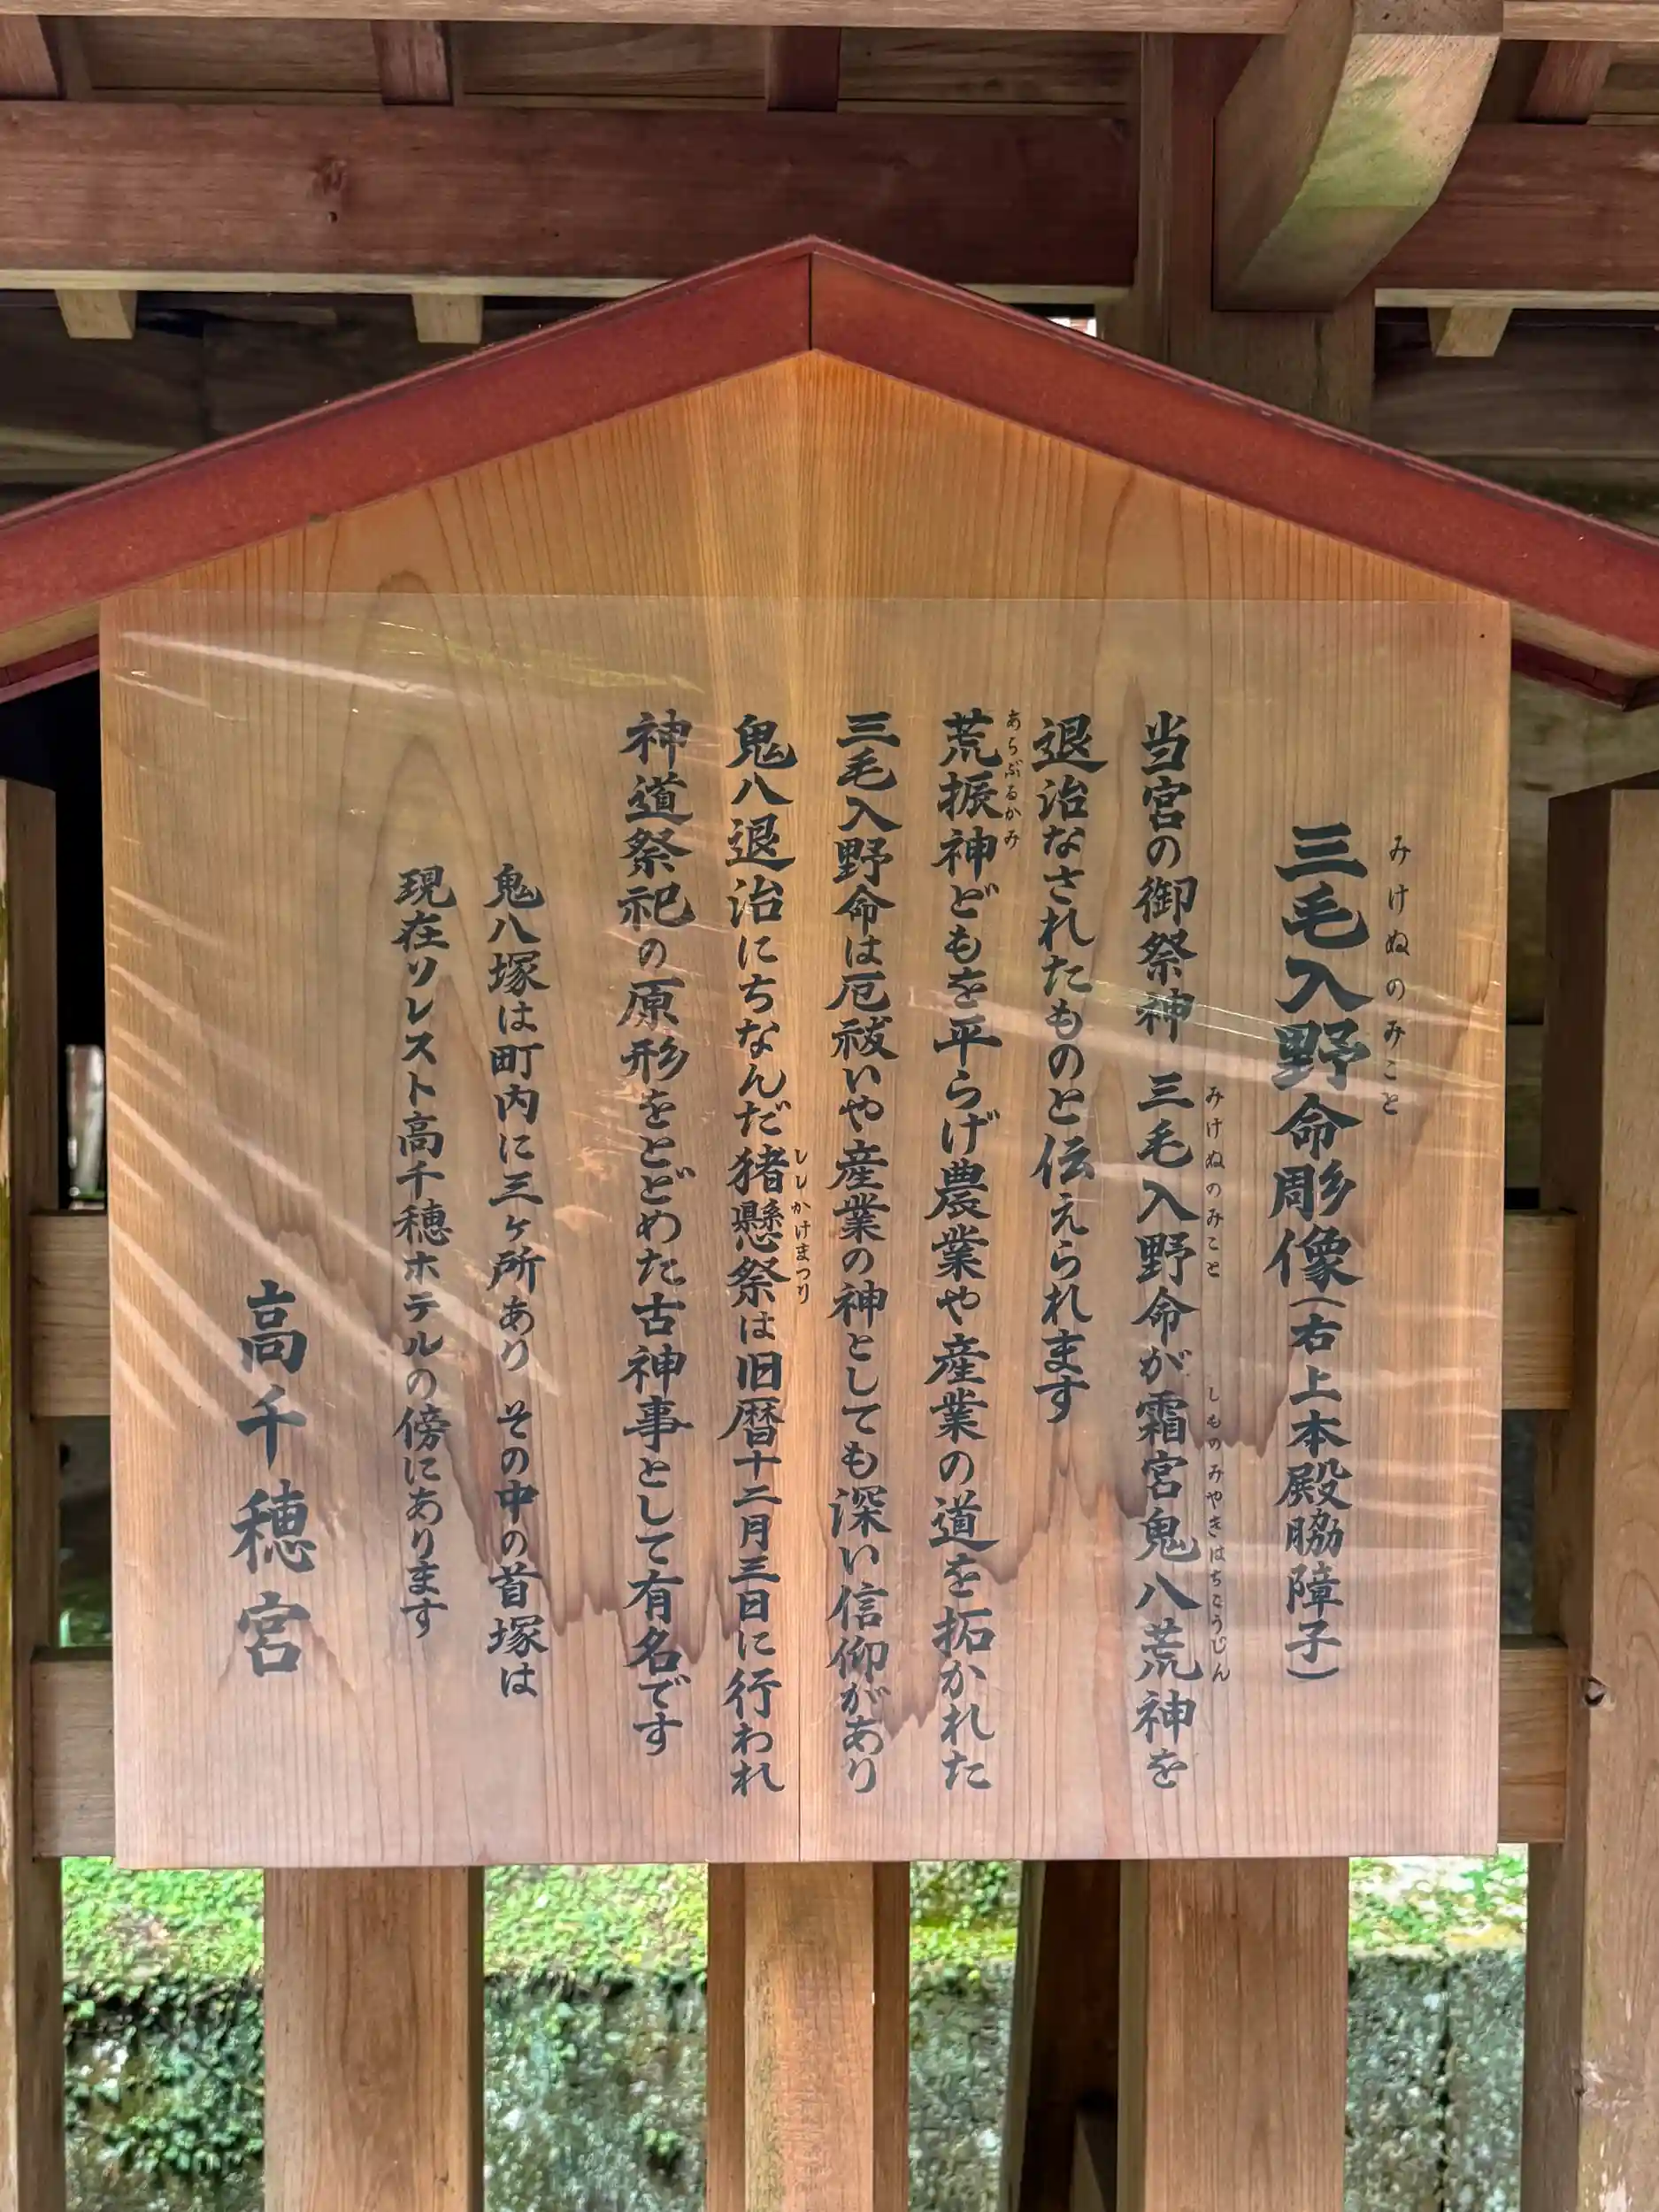 三毛入野命彫像(右上本殿脇障子)
みけぬのみこと
当宮の御祭神 三毛入野命が霜宮鬼八荒神を
みけぬのみこと
しものみやきはちこうじん
退治なされたものと伝えられます
荒振神どもを平らげ農業や産業の道を拓かれた
あらぶるかみ
三毛入野命は厄祓いや産業の神としても深い信仰があり
鬼八退治にちなんだ猪懸祭は旧暦十二月三日に行われ
ししかけまつり
神道祭祀の原形をとどめた古神事として有名です
鬼八塚は町内に三ヶ所あり その中の首塚は
現在ソレスト高千穂ホテルの傍にあります
高千穂宮